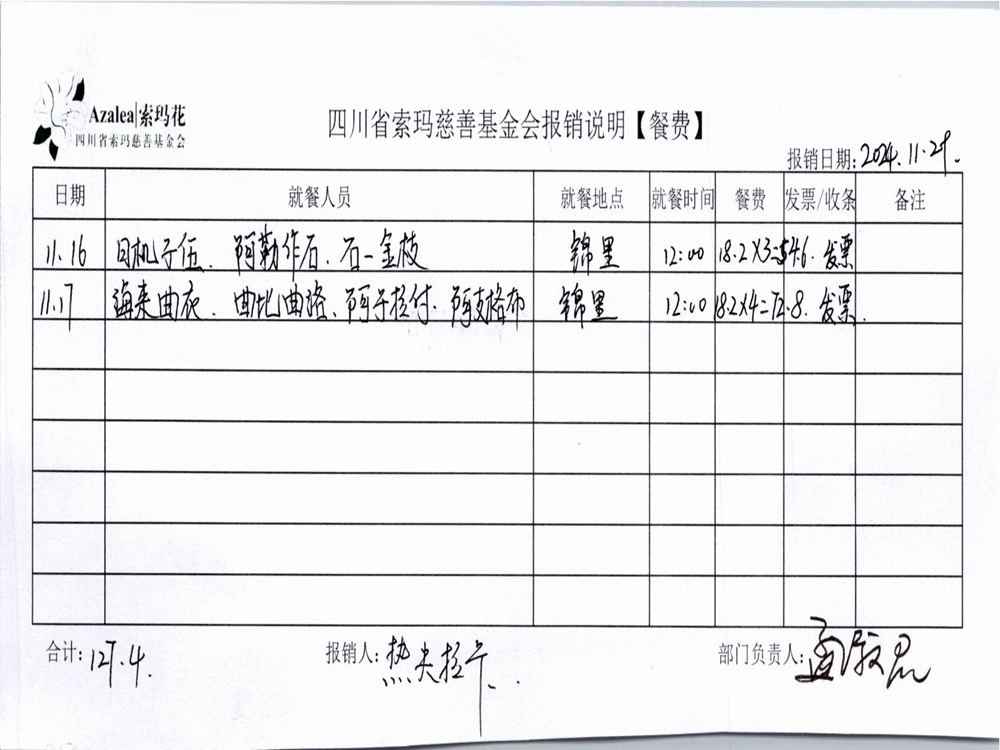 Azalea|索玛花
四川省索玛慈善基金会
四川省索玛慈善基金会报销说明【餐费】
报销日期: 2024.11.29.
日期 就餐人员 就餐地点 就餐时间 餐费 发票/收条 备注
11.16 日机子伍、阿勒作石、石一金枝 锦里 12:00 18.2×3=54.6. 发票
11.17 海来曲衣、曲比曲、阿子拉付、阿支格布 锦里 12:00 18.2×4=72.8. 发票.
合计: 127.4. 报销人: 热夫拉 部门负责人: 孟